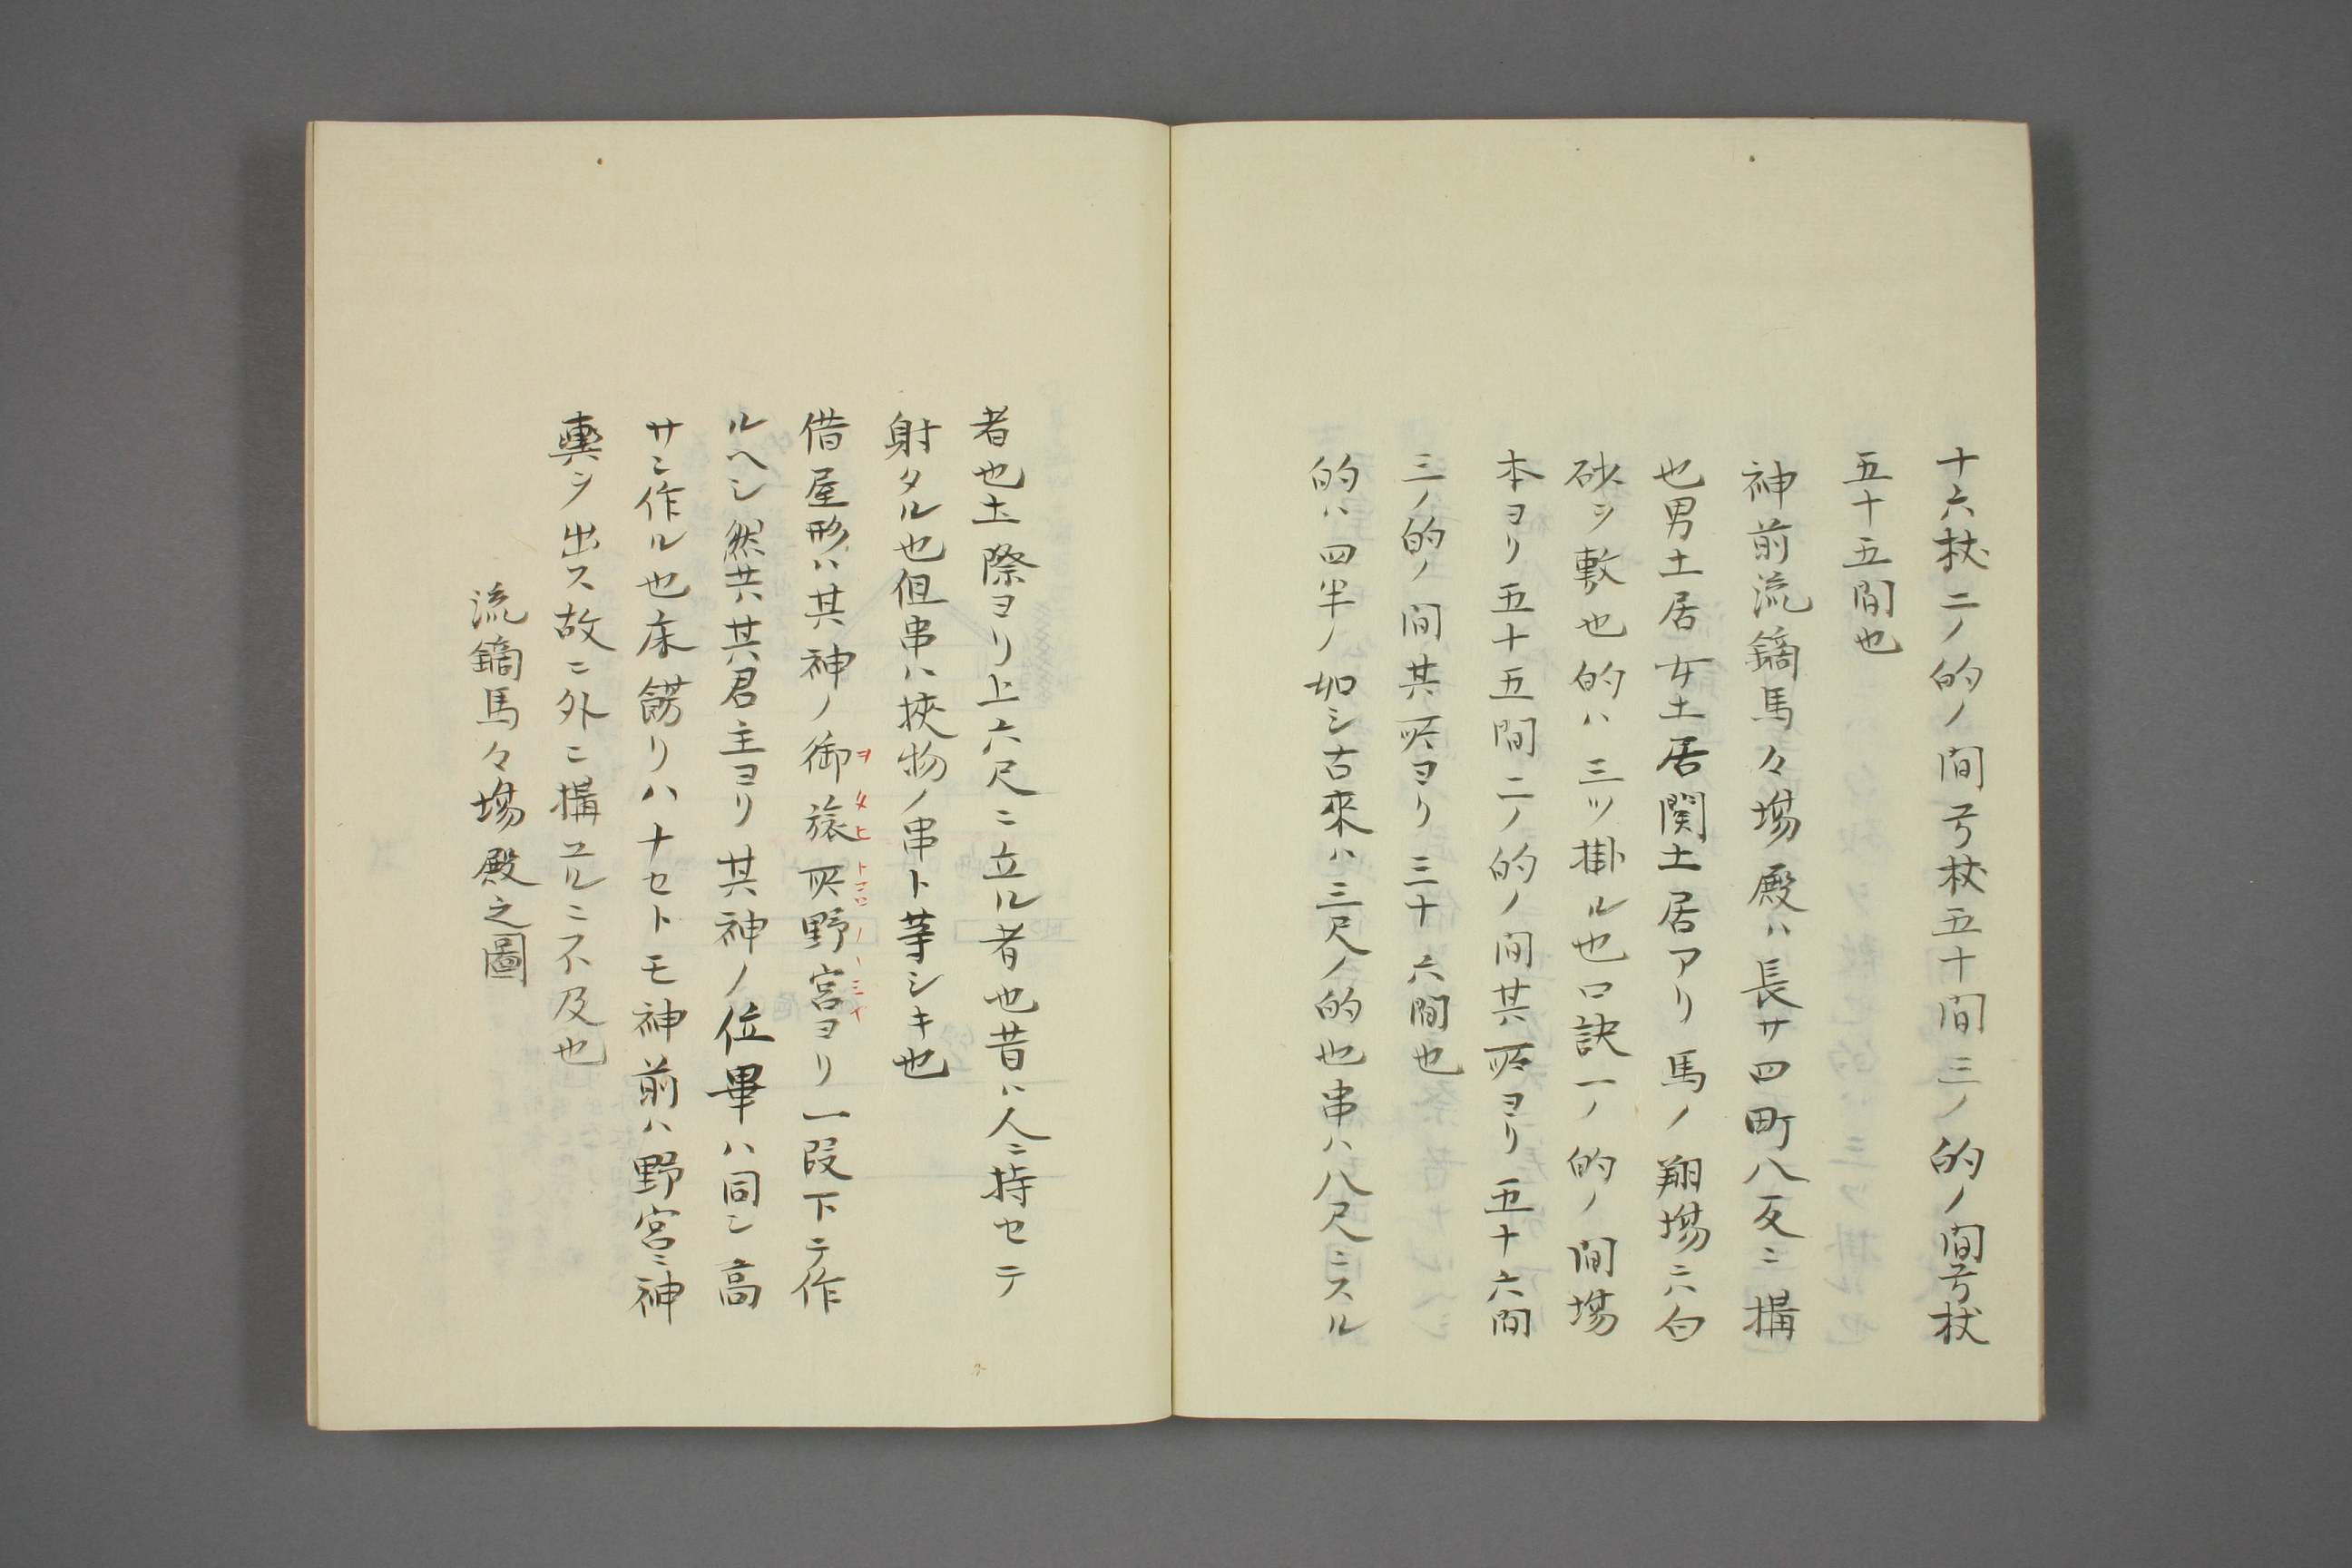 十六杖二ノ的ノ間弓杖五十間三ノ的ノ間弓杖
五十五間也
神前流鏑馬々場殿ハ長サ四町八反ニ構
也男土居女土居関土居アリ馬ノ翔場ニハ白
砂ヲ敷也的ハ三ツ掛ル也口訣一ノ的ノ間場
本ヨリ五十五間二ノ的ノ間其所ヨリ五十六間
三ノ的ノ間其所ヨリ三十六間也
的ハ四半ノ如シ古來ハ三尺ノ的也串ハ八尺ニスル
者也土際ヨリ上六尺ニ立ル者也昔ハ人ニ持セテ
射タル也但串ハ挾物ノ串ト等シキ也
借屋形ハ其神ノ御旅所野宮ヨリ一段下テ作
ヲタヒトコロノヽミヤ
ルヘシ然共其君主ヨリ其神ノ位畢ハ同シ高
サニ作ル也床餝リハナセトモ神前ハ野宮ニ神
輿ヲ出ス故ニ外ニ構ユルニ不及也
流鏑馬々場殿之圖